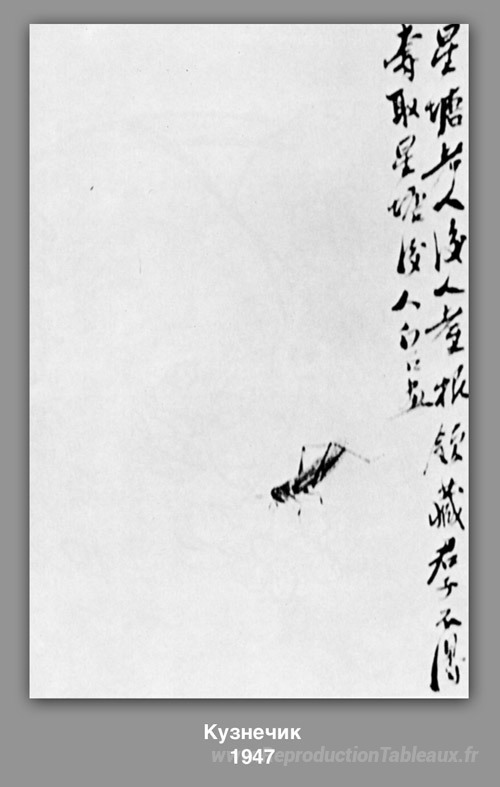 星塘老人後人根領藏君子不得
取星塘後人白
Кузнечик
1947
www.ReproductionTableaux.fr